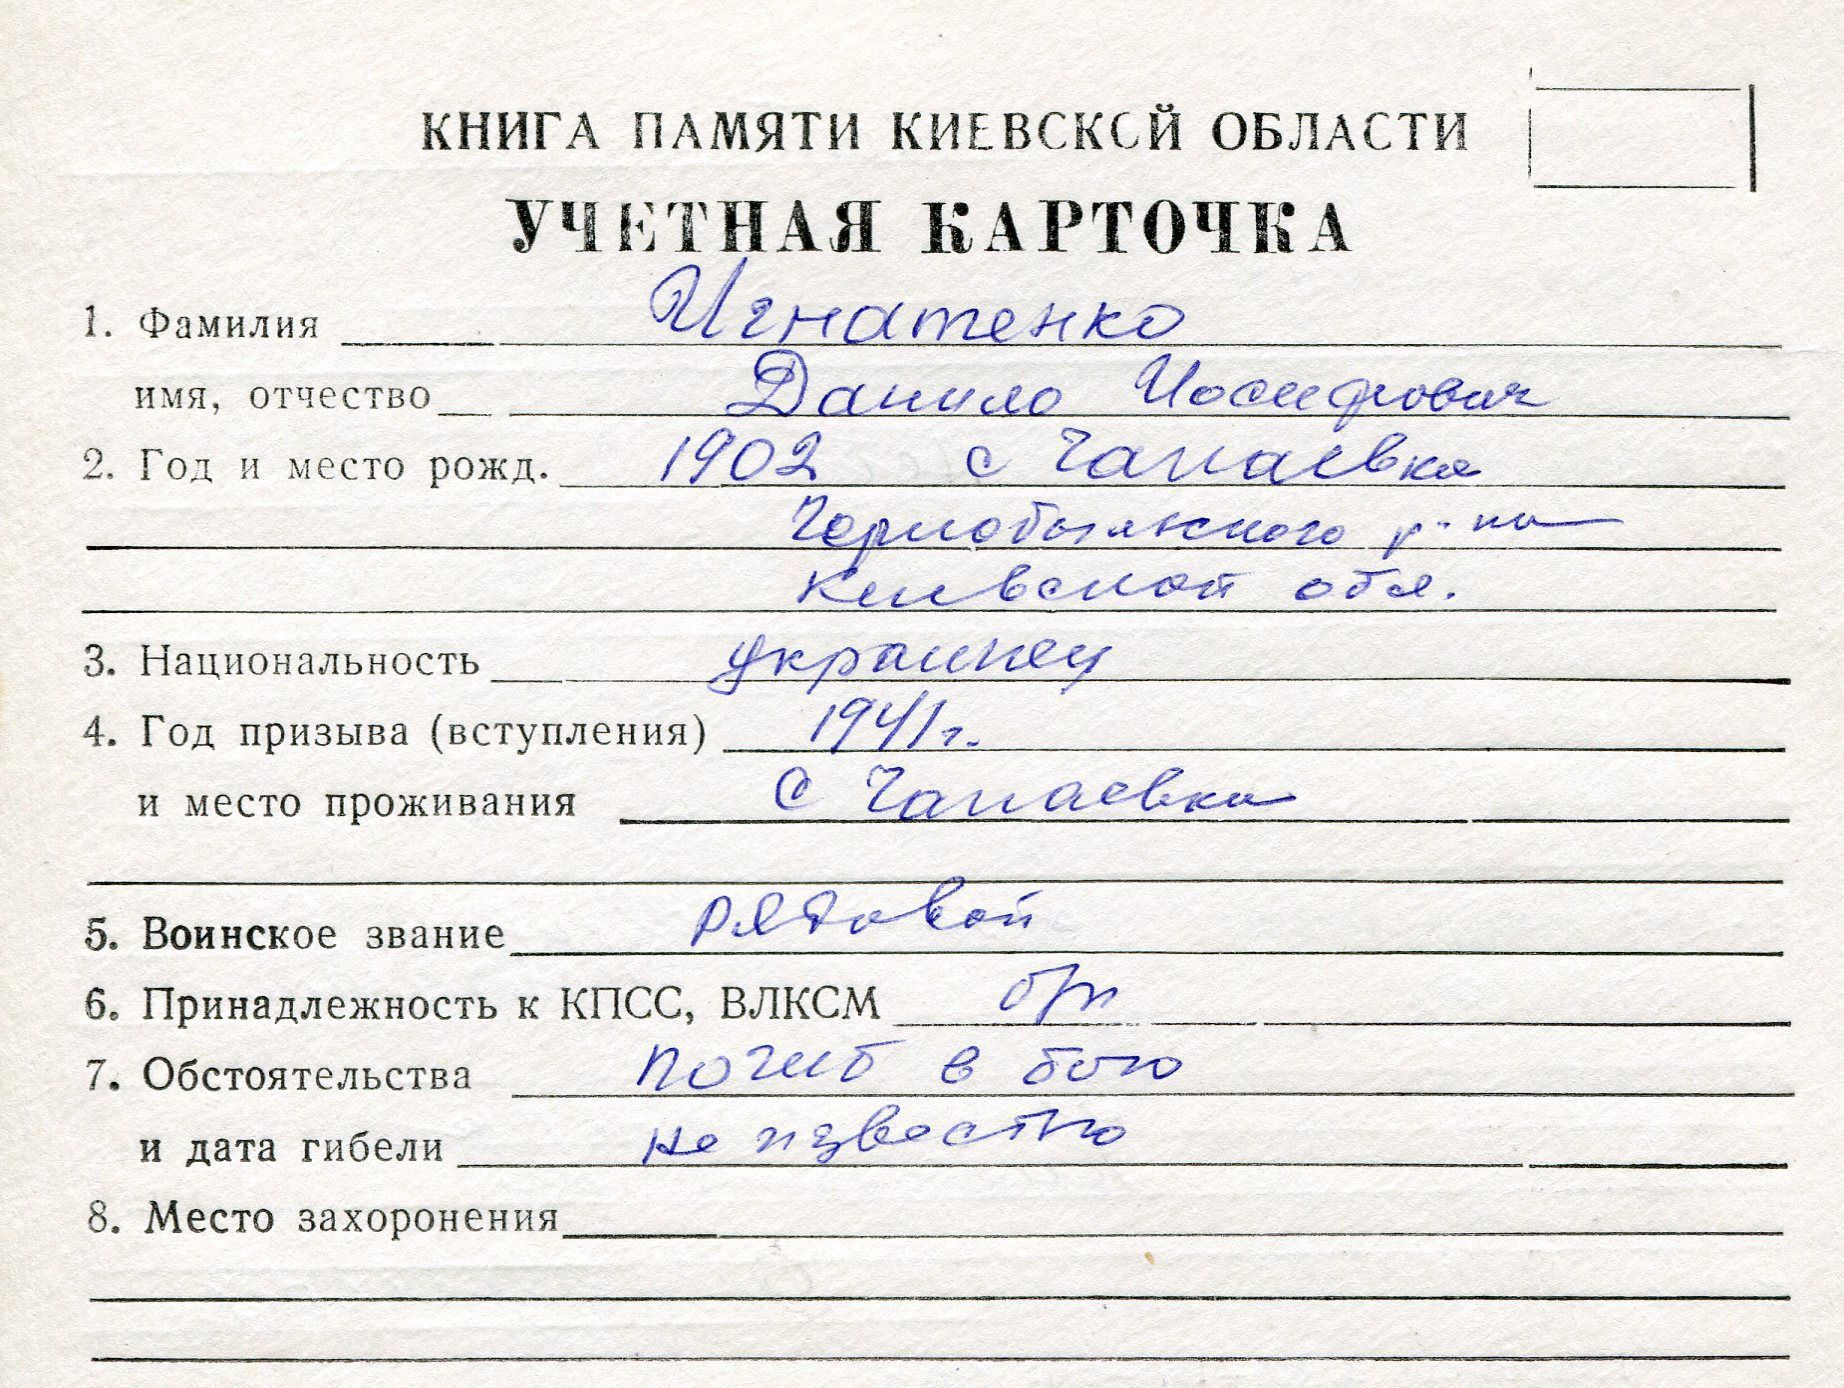 КНИГА ПАМЯТИ КИЕВСКОЙ ОБЛАСТИ
УЧЕТНАЯ КАРТОЧКА
1. Фамилия Игнатенко
имя, отчество Данило Иосифович
2. Год и место рожд. 1902 с Чапаевка
Чернобыльского р-на
Киевской обл.
3. Национальность украинец
4. Год призыва (вступления) 1941 г.
и место проживания с Чапаевка
5. Воинское звание рядовой
6. Принадлежность к КПСС, ВЛКСМ б/п
7. Обстоятельства погиб в бою
и дата гибели не известно
8. Место захоронения